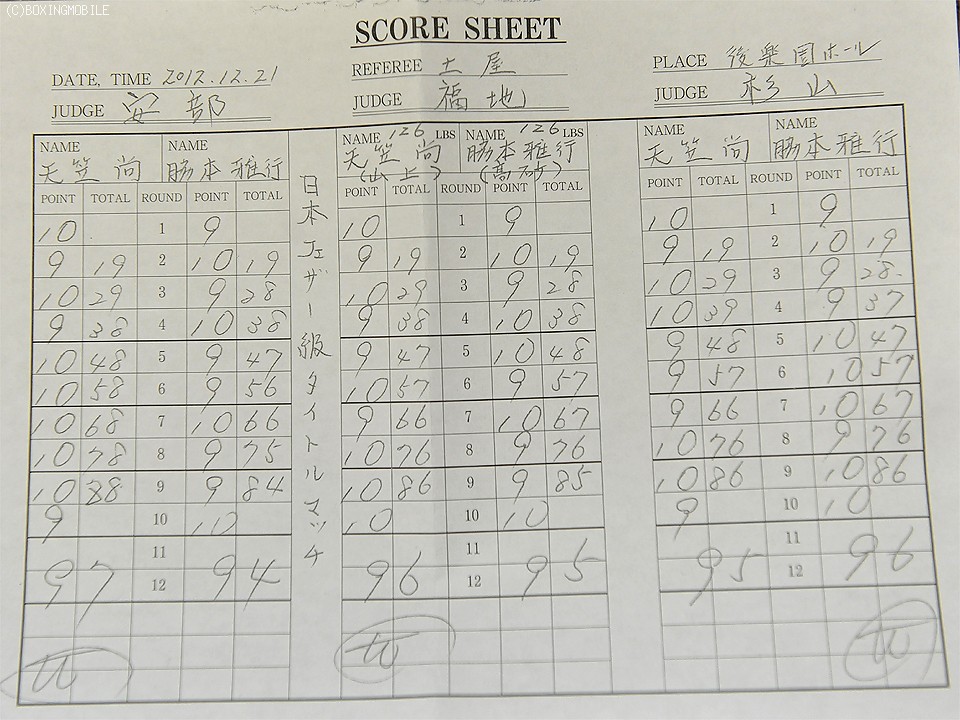 (C)BOXINGMOBILE
SCORE SHEET
DATE, TIME 2012.12.21
REFEREE 土屋
PLACE 後楽園ホール
JUDGE 安部
JUDGE 福地
JUDGE 杉山
NAME 天笠 尚 NAME 脇本雅行
POINT TOTAL ROUND POINT TOTAL
10 1 9
9 19 2 10 19
10 29 3 9 28
9 38 4 10 38
10 48 5 9 47
10 58 6 9 56
10 68 7 10 66
10 78 8 9 75
10 88 9 9 84
9 10 10
11
97 12 94
W
日本フェザー級タイトルマッチ
NAME 126 LBS NAME 126 LBS
天笠 尚 脇本雅行
(山上) (高砂)
POINT TOTAL ROUND POINT TOTAL
10 1 9
9 19 2 10 19
10 29 3 9 28
9 38 4 10 38
9 47 5 10 48
10 57 6 9 57
9 66 7 10 67
10 76 8 9 76
10 86 9 9 85
10 10 10
11
96 12 95
W
NAME 天笠 尚 NAME 脇本雅行
POINT TOTAL ROUND POINT TOTAL
10 1 9
9 19 2 10 19
10 29 3 9 28
10 39 4 9 37
9 48 5 10 47
9 57 6 10 57
9 66 7 10 67
10 76 8 9 76
10 86 9 10 86
9 10 10
11
95 12 96
W